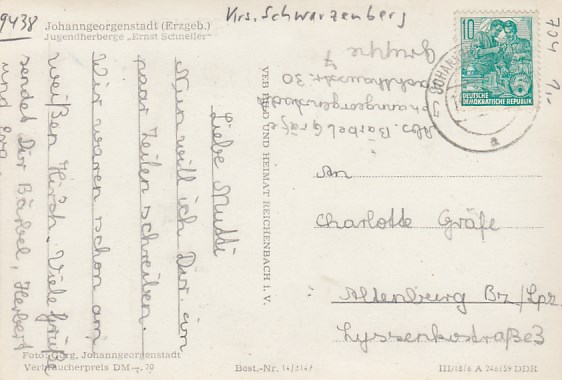 9438
Johanngeorgenstadt (Erzgeb.)
Jugendherberge „Ernst Schneller"
Krs. Schwarzenberg
704
Liebe Mutti
Nun will ich Dir ein
paar Zeilen schreiben.
Wir waren schon am
weißen Hirsch. Viele Grüße
sendet Dir Bärbel, Herbert
und
Abs. Bärbel Gräfe
Johanngeorgenstadt
30
Gruppe 7
VEB BILD UND HEIMAT REICHENBACH I. V.
10
DEUTSCHE
DEMOKRATISCHE REPUBLIK
a
An
Charlotte Gräfe
Altenburg Bz/Lpz
Lyssenkostraße 3
Foto: Görg, Johanngeorgenstadt
Verbraucherpreis DM -,20
Best.-Nr. 14/3147
III/18/6 A 246/59 DDR